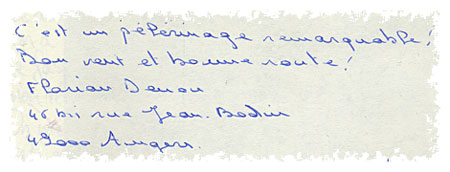 C'est un pélérinage remarquable!
Bon vent et bonne route!
Florian Denou
46 bis rue Jean. Bodin
49000 Angers.